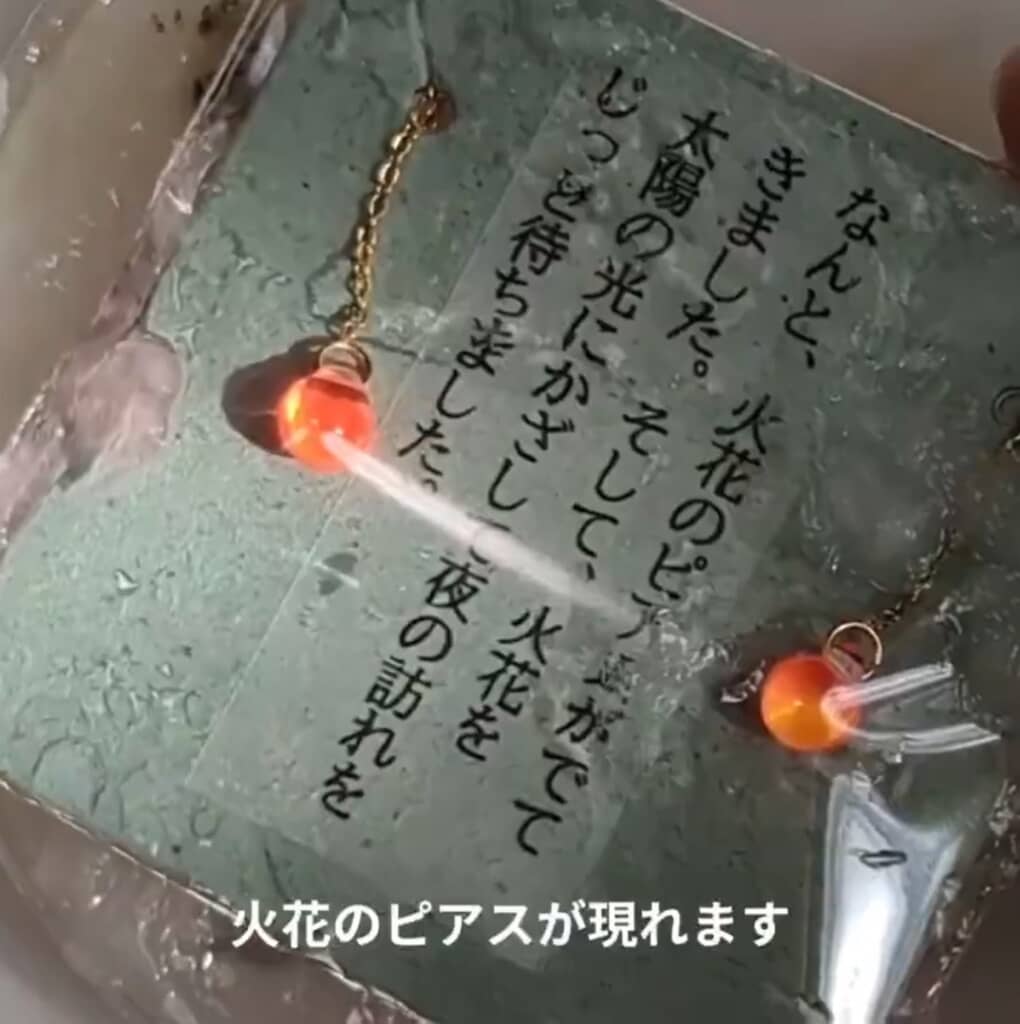 なんと、火花のピアスがでて
きました。そして、火花を
太陽の光にかざして夜の訪れを
じっと待ちました。
火花のピアスが現れます